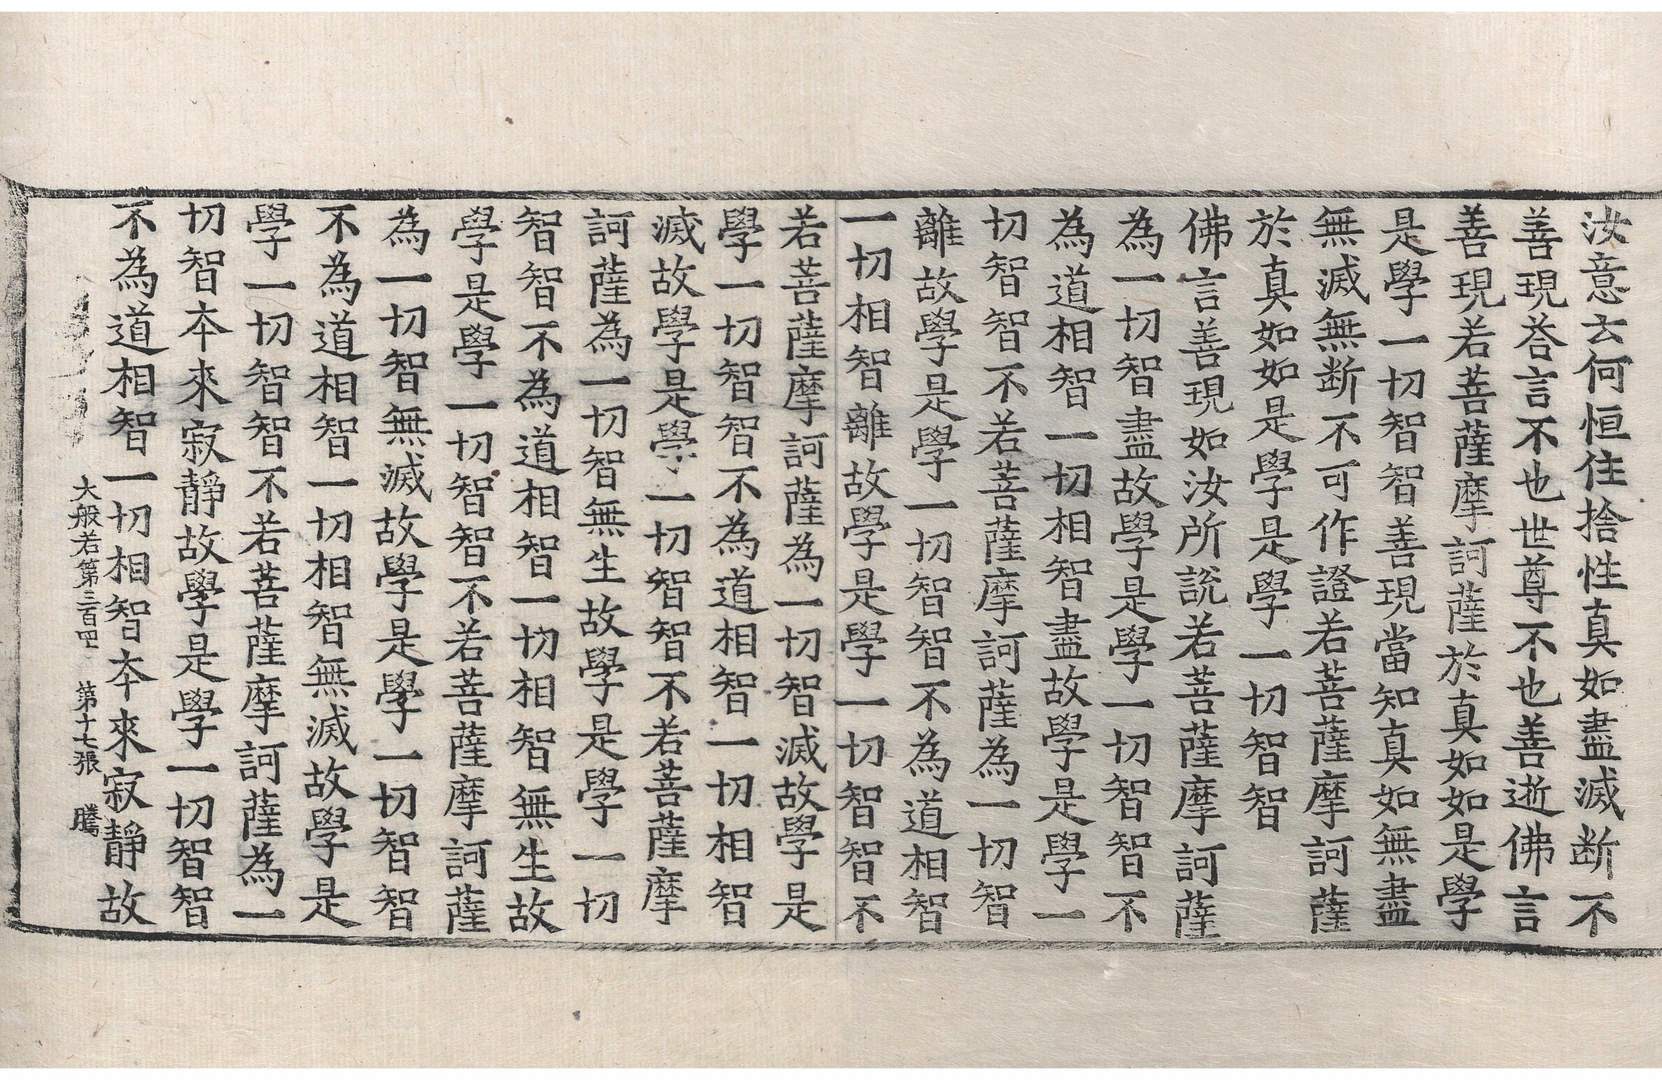 汝意云何恒住捨性真如盡滅断不
善現荅言不也世尊不也善逝佛言
善現若菩薩摩訶薩於真如如是學
是學一切智智善現當知真如無盡
無滅無断不可作證若菩薩摩訶薩
於真如如是學是學一切智智
佛言善現如汝所說若菩薩摩訶薩
為一切智盡故學是學一切智智不
為道相智一切相智盡故學是學一
切智智不若菩薩摩訶薩為一切智
離故學是學一切智智不為道相智
一切相智離故學是學一切智智不
若菩薩摩訶薩為一切智滅故學是
學一切智智不為道相智一切相智
滅故學是學一切智智不若菩薩摩
訶薩為一切智無生故學是學一切
智智不為道相智一切相智無生故
學是學一切智智不若菩薩摩訶薩
為一切智無滅故學是學一切智智
不為道相智一切相智無滅故學是
學一切智智不若菩薩摩訶薩為一
切智夲來寂靜故學是學一切智智
不為道相智一切相智夲來寂靜故
大般若第三百四 第十七張 騰